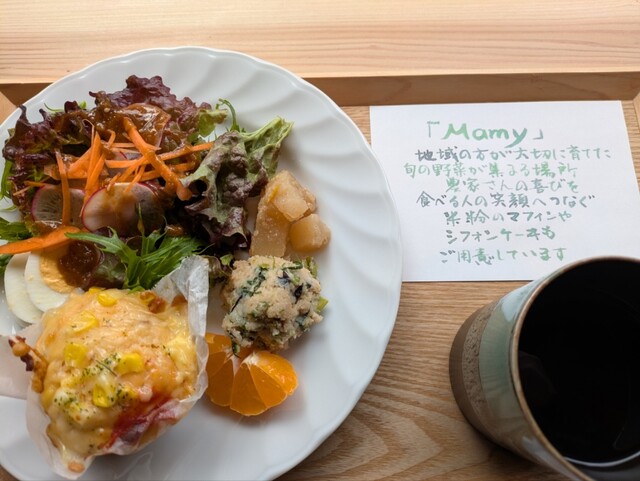 「Mamy」
地域の方が大切に育てた
旬の野菜が集まる場所
農家さんの喜びを
食べる人の笑顔へつなぐ
米粉のマフィンや
シフォンケーキも
ご用意しています